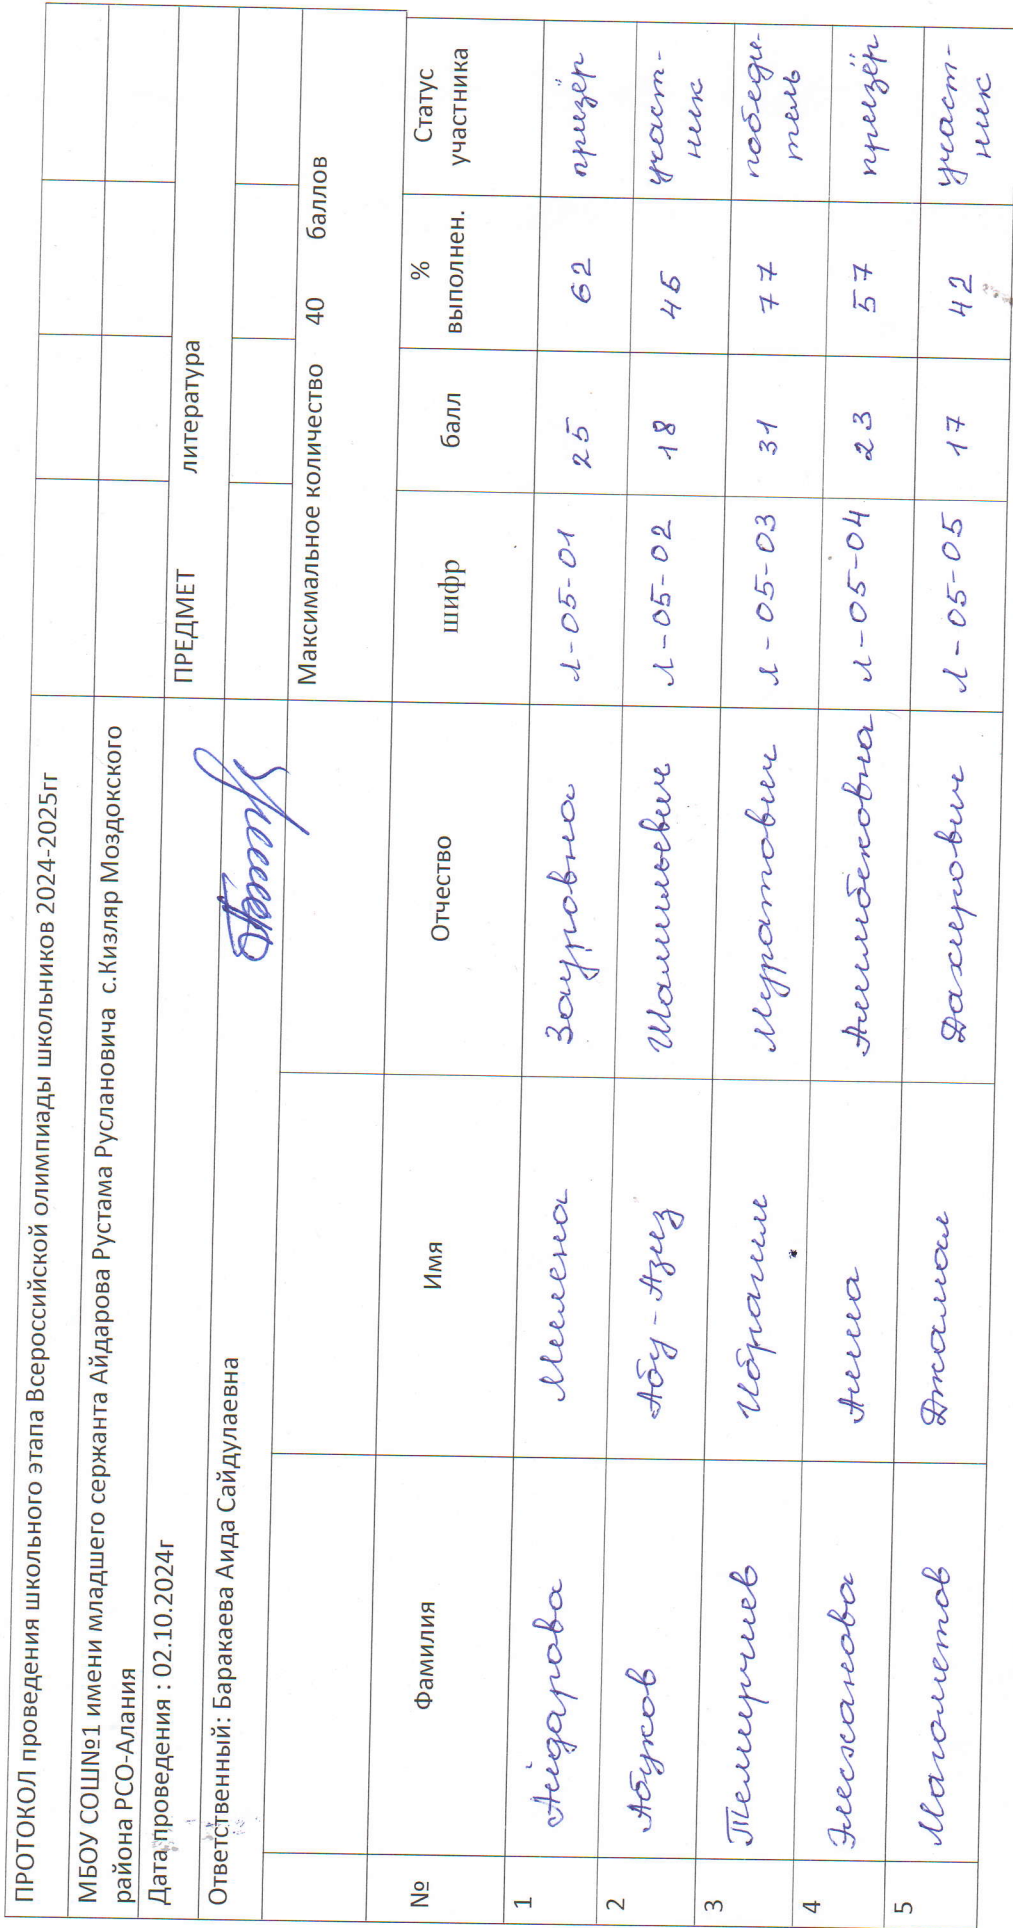 ПРОТОКОЛ проведения школьного этапа Всероссийской олимпиады школьников 2024-2025гг
МБОУ СОШ№1 имени младшего сержанта Айдарова Рустама Руслановича с.Кизляр Моздокского
района РСО-Алания
Дата проведения : 02.10.2024г ПРЕДМЕТ литература
Ответственный: Баракаева Аида Сайдулаевна
Максимальное количество 40 баллов
№ Фамилия Имя Отчество шифр балл % выполнен. Статус участника
1 Айдарова Милена Зауровна Л-05-01 25 62 призёр
2 Абуков Абу-Азиз Шамильевич Л-05-02 18 45 участ-
ник
3 Темирчиев Ибрагим Муратович Л-05-03 31 77 победи-
тель
4 Элесханова Алима Алимбековна Л-05-04 23 57 призёр
5 Магометов Джамал Дахирович Л-05-05 17 42 участ-
ник